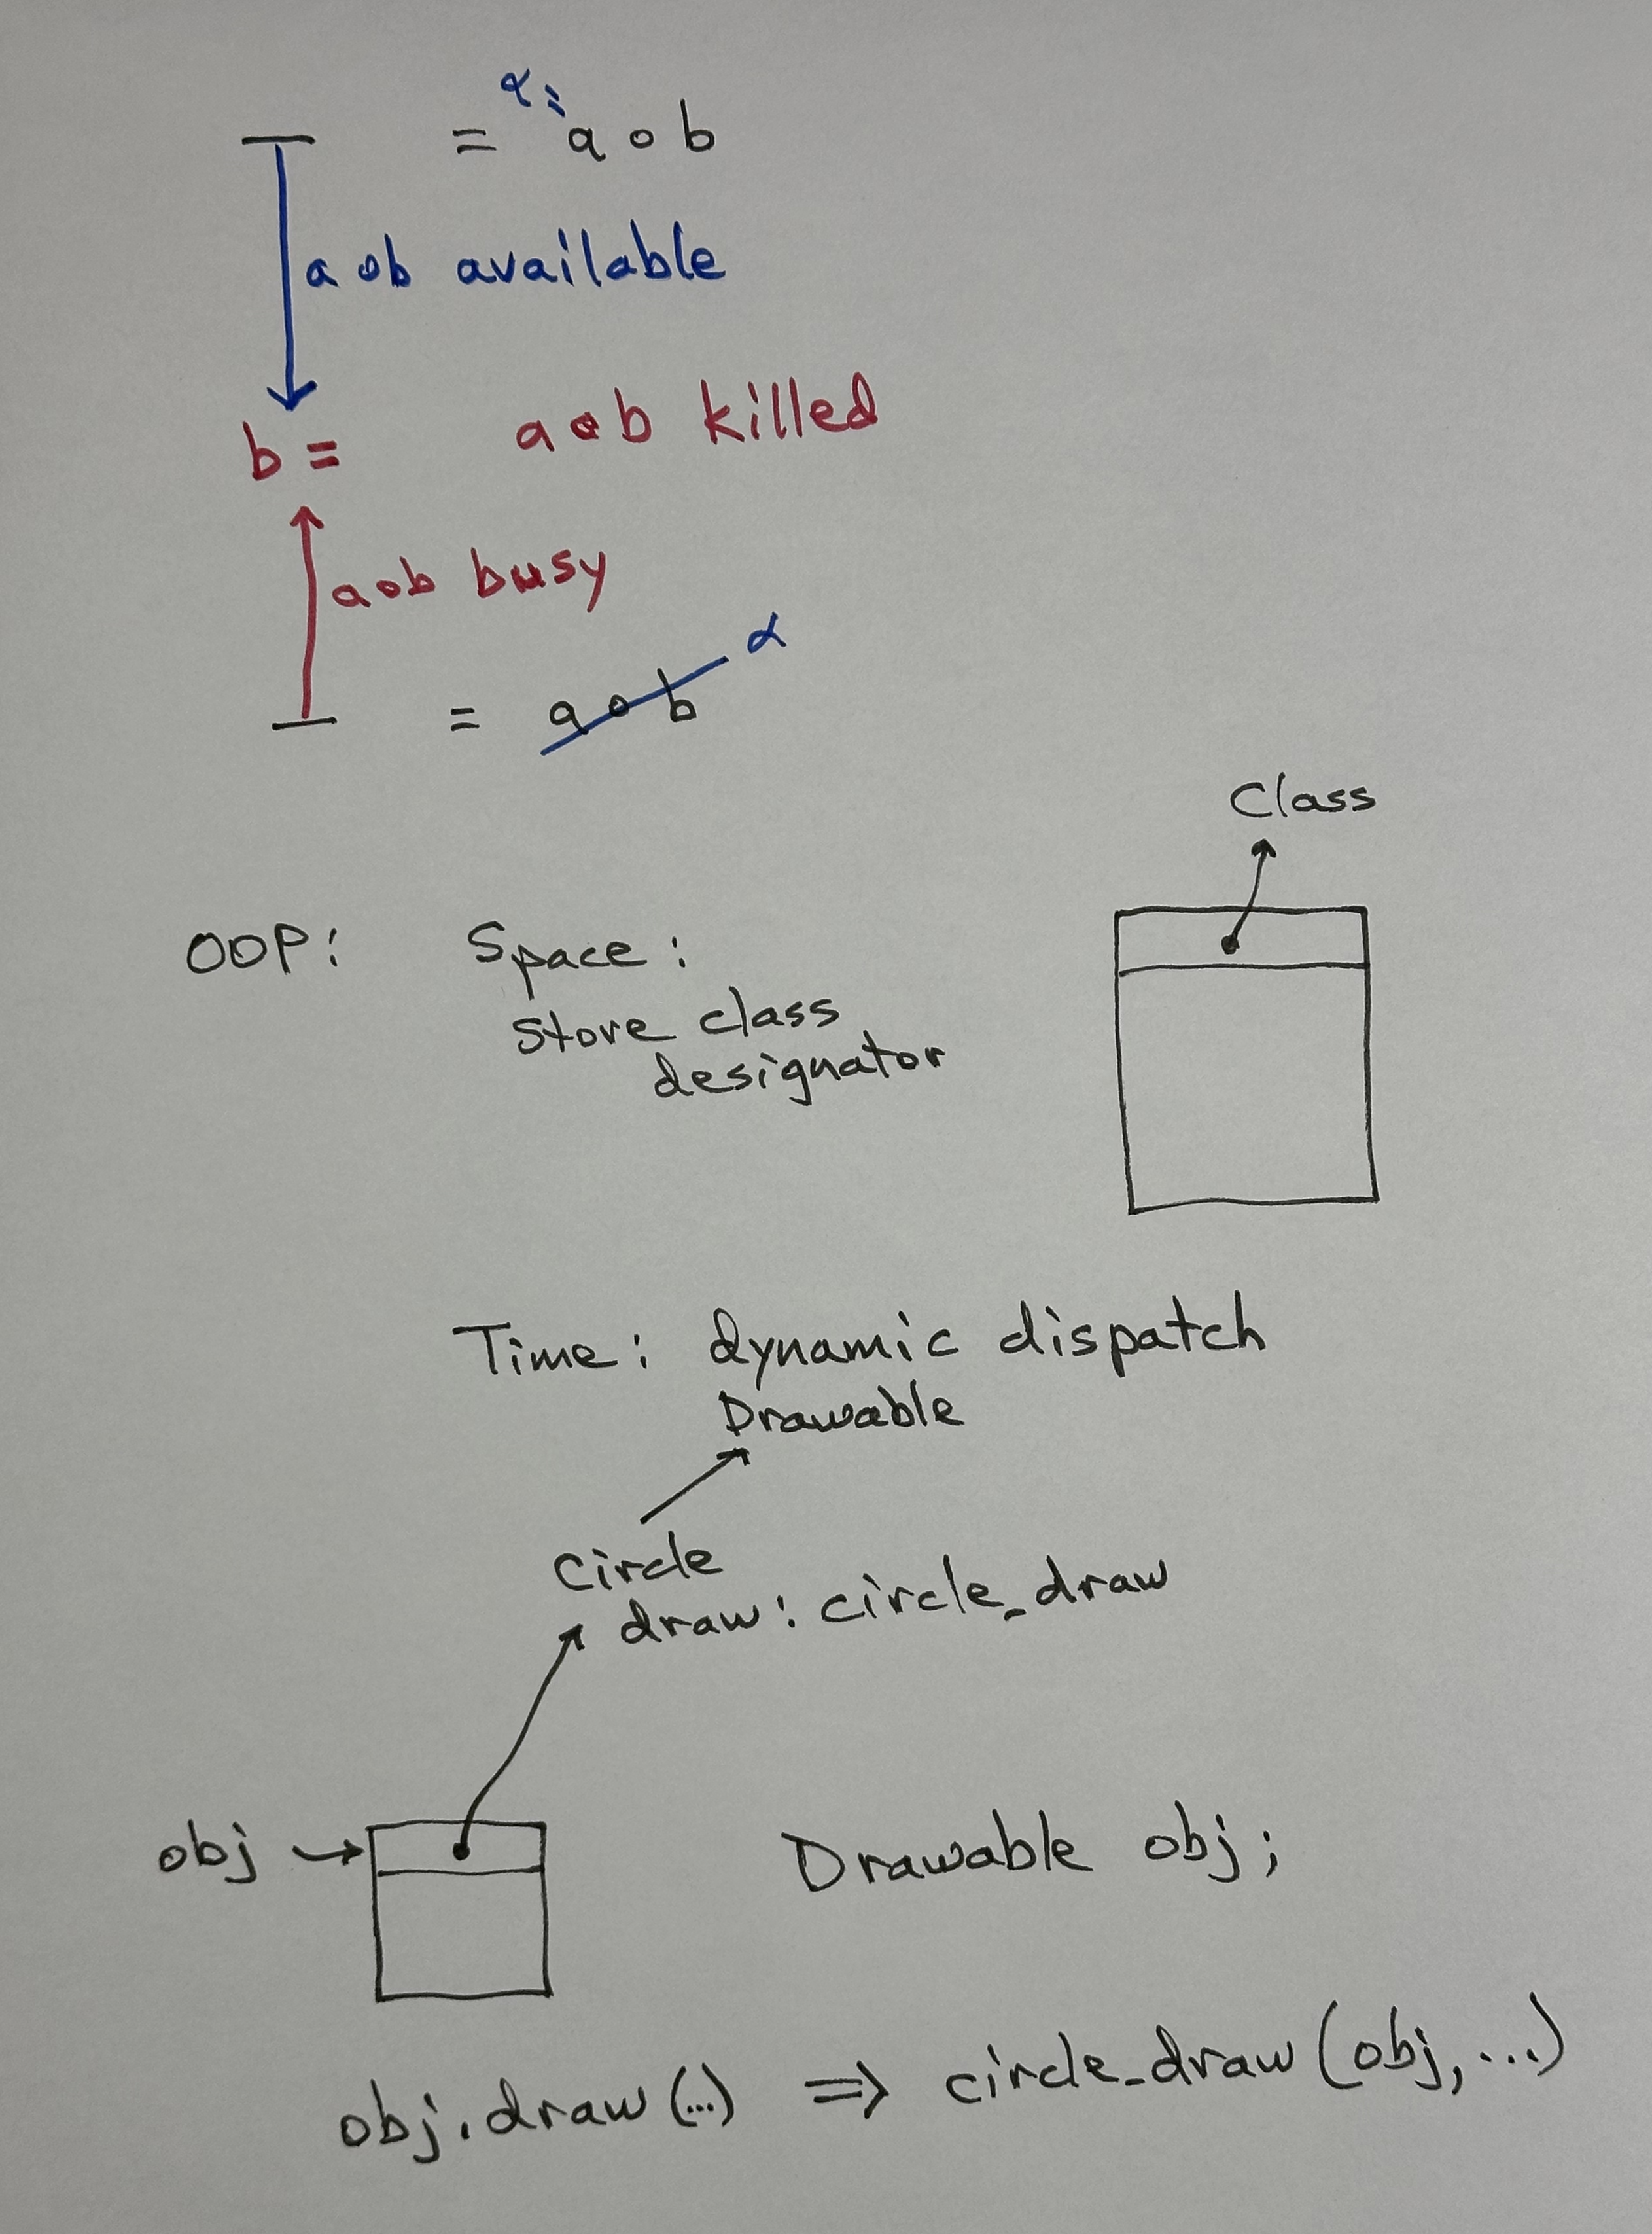 α:
= a o b
a o b available
b = a o b killed
a o b busy
α
= a o b
Class
OOP: Space:
Store class
designator
Time: dynamic dispatch
Drawable
Circle
draw: circle_draw
obj
Drawable obj;
obj.draw(...) => circle_draw(obj, ...)